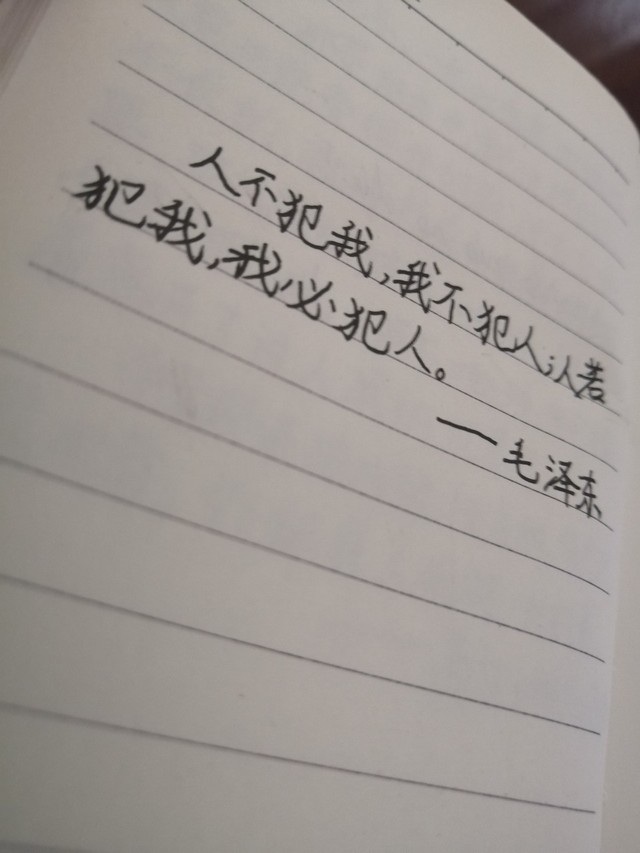 人不犯我,我不犯人;人若
犯我,我必犯人。
——毛泽东